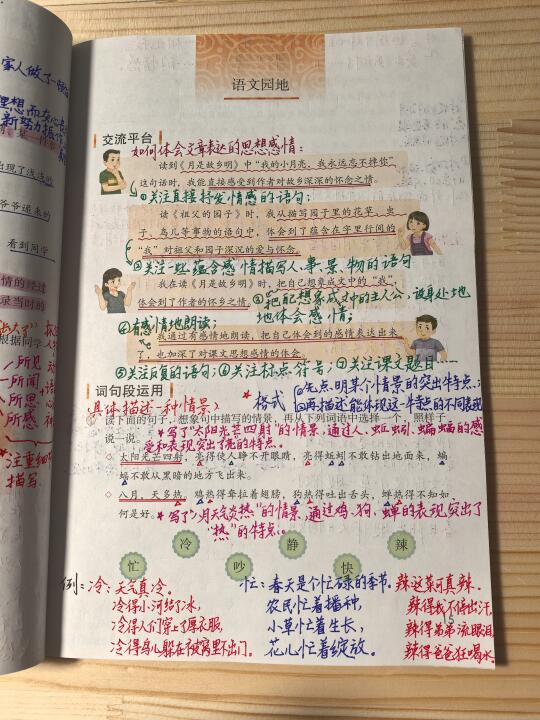 家人做了一顿
理想而在心
新努力振作
出现了浅浅的
爷爷递来的
看到同学
情的经过
录当时的
根据同学
所见
所闻
所思
所感
注重细
描写
语文园地
交流平台
如何体会文章表达的思想感情：
读到《月是故乡明》中“我的小月亮，我永远忘不掉你”
这句话时，我能直接感受到作者对故乡深深的怀念之情。
①关注直接抒发情感的语句；
读《祖父的园子》时，我从描写园子里的花草、虫
子、鸟儿等事物的语句中，体会到了蕴含在字里行间的
“我”对祖父和园子深沉的爱与怀念。
②关注一些蕴含感情描写人、事、景、物的语句
我在读《月是故乡明》时，把自己想象成文中的“我”，
体会到了作者的怀乡之情。③把自己想象成文中的主人公，设身处地
地体会感情；
④有感情地朗读；
我通过有感情地朗读，把自己体会到的感情表达出来
了，也加深了对课文思想感情的体会。
⑤关注反复的语句；⑥关注标点符号；⑦关注课文题目……
词句段运用
(具体描述一种情景)
格式
①先点明某个情景的突出特点；
②再描述能体现这一特点的不同表现
读下面的句子，想象句中描写的情景，再从下列词语中选择一个，照样子
说一说。
*写了“太阳光芒四射”的情景，通过人、蚯蚓、蝙蝠的感
受和表现突出了亮的特点。
◇ 太阳光芒四射，亮得使人睁不开眼睛，亮得蚯蚓不敢钻出地面来，蝙
蝠不敢从黑暗的地方飞出来。
◇ 八月，天多热。鸡热得耷拉着翅膀，狗热得吐出舌头，蝉热得不知如
何是好。*写了八月天气炎热”的情景，通过鸡、狗、蝉的表现突出了
“热”的特点。
忙 冷 吵 静 快 辣
例：冷：天气真冷。
冷得小河结了冰，
冷得人们穿上了厚衣服，
冷得鸟儿躲在被窝里不出门。
忙：春天是个忙碌的季节。
农民忙着播种，
小草忙着生长，
花儿忙着绽放。
辣：这菜可真辣。
辣得我不停出汗，
辣得弟弟流眼泪，
辣得爸爸狂喝水。